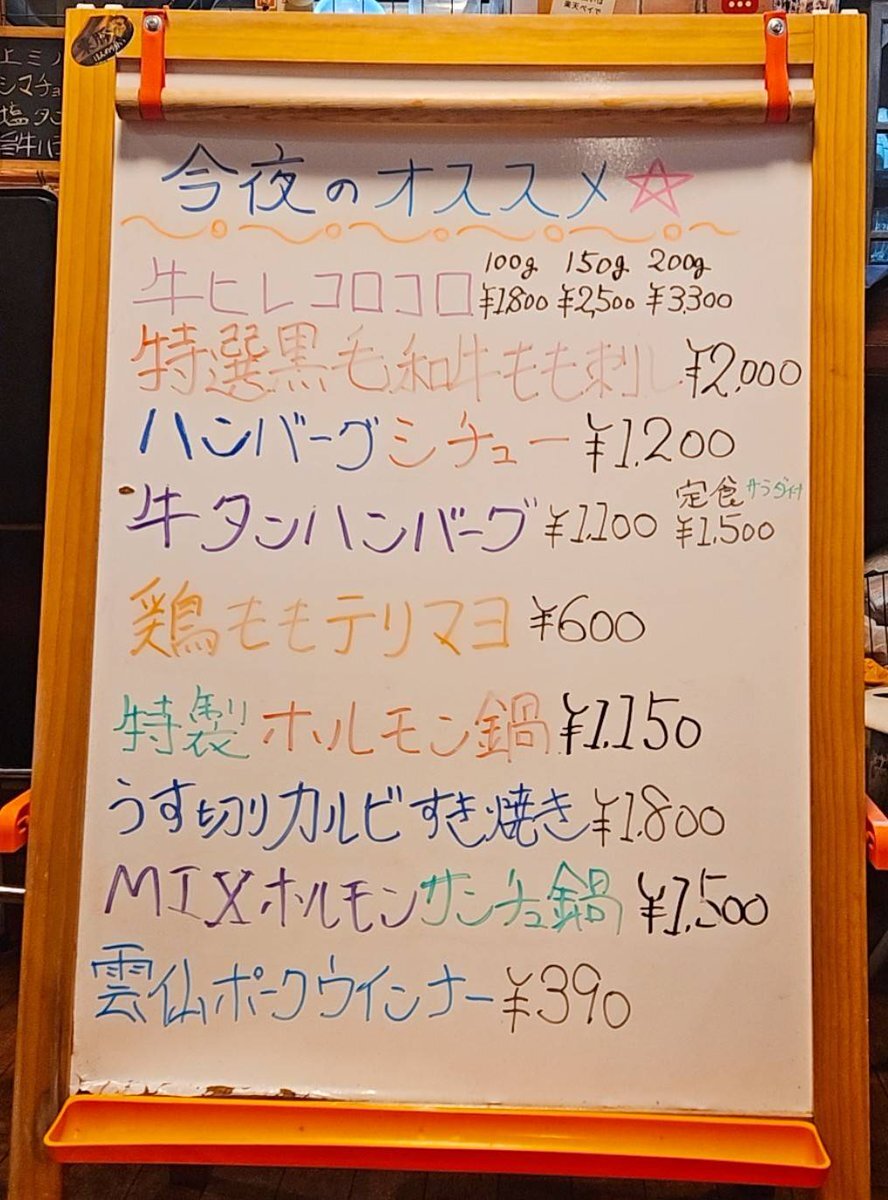 楽天ペイで
上ミノ
シマチョ
塩タン
今夜のオススメ☆
100g 150g 200g
牛ヒレコロコロ ¥1800 ¥2,500 ¥3,300
特選黒毛和牛もも刺し ¥2,000
ハンバーグシチュー ¥1,200
定食 サラダ付
牛タンハンバーグ ¥1,100 ¥1,500
鶏ももテリマヨ ¥600
特製 ホルモン鍋 ¥1,150
うす切りカルビすき焼き ¥1,800
MIXホルモンサンチュ鍋 ¥1,500
雲仙ポークウインナー ¥390